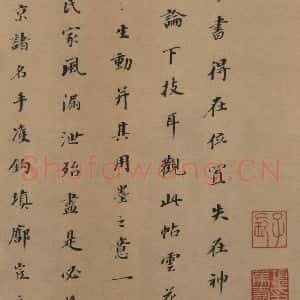 書得在位置失在神
論下技耳觀此帖雲
生動并其用墨之意一
民家風漏泄殆盡是必
京諸名手雙鉤填廓豈
Shufawang.CN